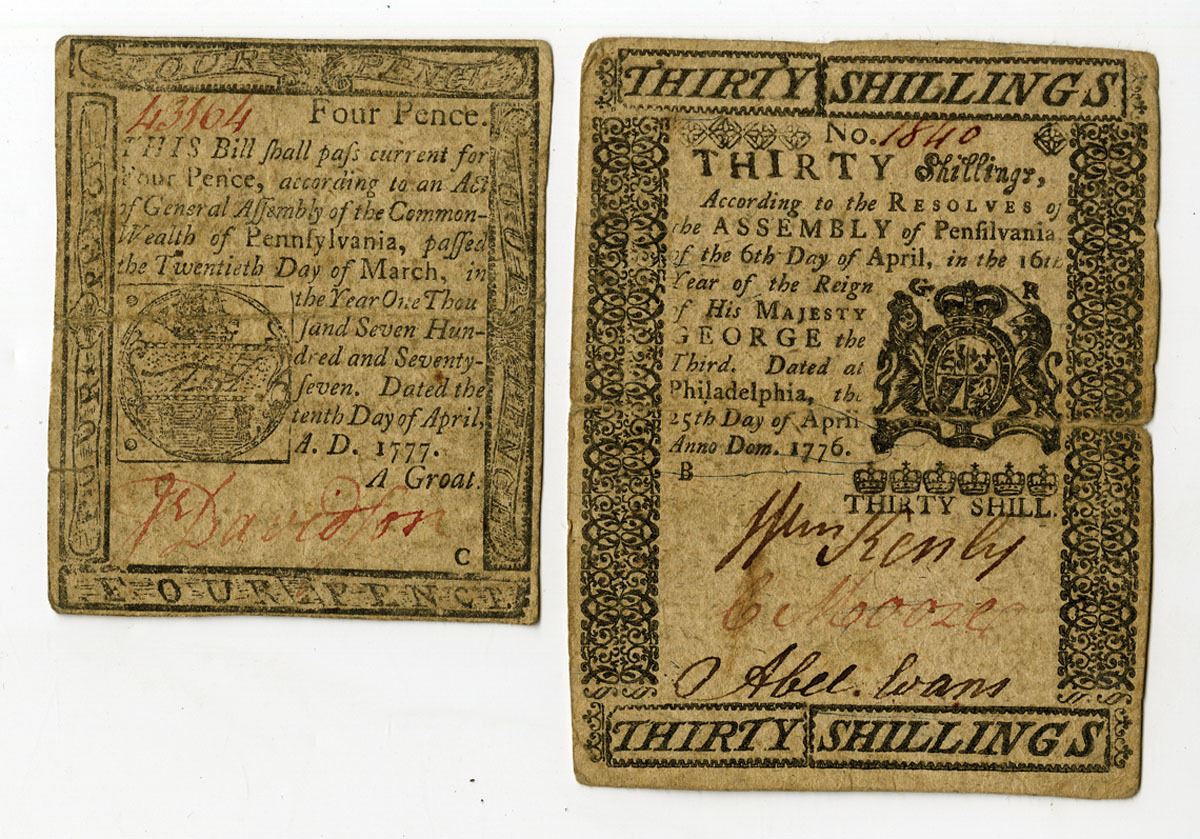 FOUR PENCE
43164 Four Pence.
THIS Bill ſhall paſs current for
Four Pence, according to an Act
of General Aſſembly of the Common-
Wealth of Pennſylvania, paſſed
the Twentieth Day of March, in
the Year One Thou
ſand Seven Hun-
dred and Seventy-
ſeven. Dated the
tenth Day of April,
A. D. 1777.
A Groat.
Davidſon
C
FOUR PENCE
FOUR PENCE
FOUR PENCE
THIRTY SHILLINGS
No. 1840
THIRTY Shillings,
According to the RESOLVES of
the ASSEMBLY of Penſilvania
of the 6th Day of April, in the 16th
Year of the Reign
of His MAJESTY
GEORGE the
Third. Dated at
Philadelphia, the
25th Day of April
Anno Dom. 1776.
G R
B
THIRTY SHILL.
Wm Kenly
C Moore
Abel. Evans
THIRTY SHILLINGS